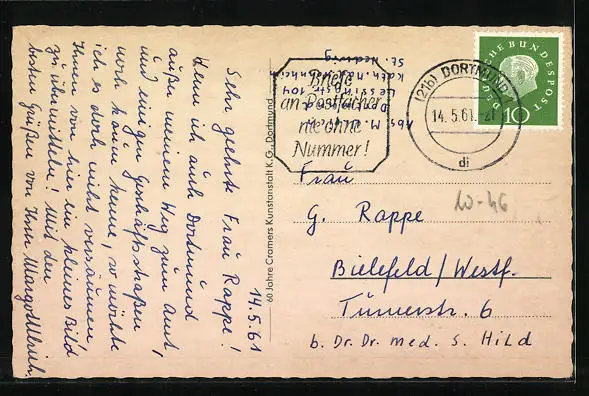 14.5.61
Sehr geehrte Frau Rappe!
Wenn ich auch Dortmund
außer meinem Weg zum Amt,
und einigen Geschäftsstraßen
noch kaum kenne, so möchte
ich es doch nicht versäumen
Ihnen von hier ein kleines Bild
zu übermitteln! Mit den
besten Grüßen von Ihrer Margot Ulrich.
60 Jahre Cramers Kunstanstalt K.G., Dortmund
Abs. M. Ulrich
Dortmund
Lessingstr. 104
Kath. Mädchenheim
St. Hedwig
Briefe
an Postfächer
nie ohne
Nummer!
(21b) DORTMUND 1
14.5.61.-21
di
DEUTSCHE BUNDESPOST
10
Frau
G. Rappe
10-46
Bielefeld/Westf.
Turnerstr. 6
b. Dr. Dr. med. S. Hild